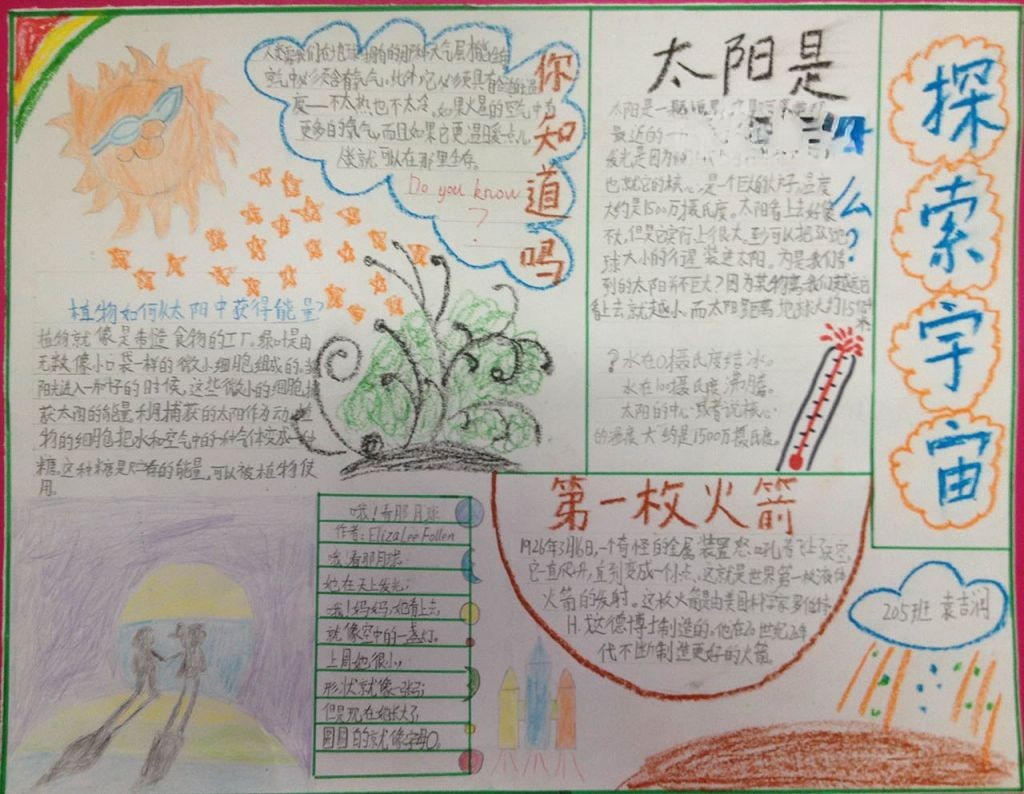 探索宇宙
太阳是
么？
太阳是一
最近的一
发光是因为
也就它的核心是一个巨大的火炉,温度
大约是1500万摄氏度。太阳看上去好像
不大,但是它实际上很大,至少可以把
球大小的行星装进太阳。为是我们看
到的太阳并不巨大？因为某物离我们越远自
看上去就越小。而太阳距离地球大约1.5
？水在0摄氏度结冰。
水在100摄氏度沸腾。
太阳的中心或者说核心
的温度大约是1500万摄氏度。
你知道吗
Do you know
？
空气中必须含有氧气。此外,它必须具有
度——不太热也不太冷。如果火星的空气中有
更多的氧气,而且如果它更温暖一点儿,
类就可以在那里生存。
植物如何从太阳中获得能量？
植物就像是制造食物的工厂。绿叶是由
无数像小口袋一样的微小细胞组成的。当
阳进入一片叶的时候,这些微小的细胞捕
获太阳的能量。利用捕获的太阳作为动
物的细胞把水和空气中的一种气体变成一种
糖。这种糖是贮存的能量,可以被植物使
用。
哦！看那月球
作者：Eliza Lee Follen
哦！看那月球,
她在天上发光；
哦！妈妈,她看上去
就像空中的一盏灯。
上周她很小,
形状就像一张弓；
但是现在她长大了,
圆圆的就像字母O。
第一枚火箭
1926年3月16日,一个奇怪的金属装置怒吼着飞上了天空。
它一直飞升,直到变成一个小点。这就是世界第一枚液体
火箭的发射。这枚火箭是由美国科学家罗伯特·
H.戈达德博士制造的。他在20世纪
代不断制造更好的火箭。
205班 袁吉润